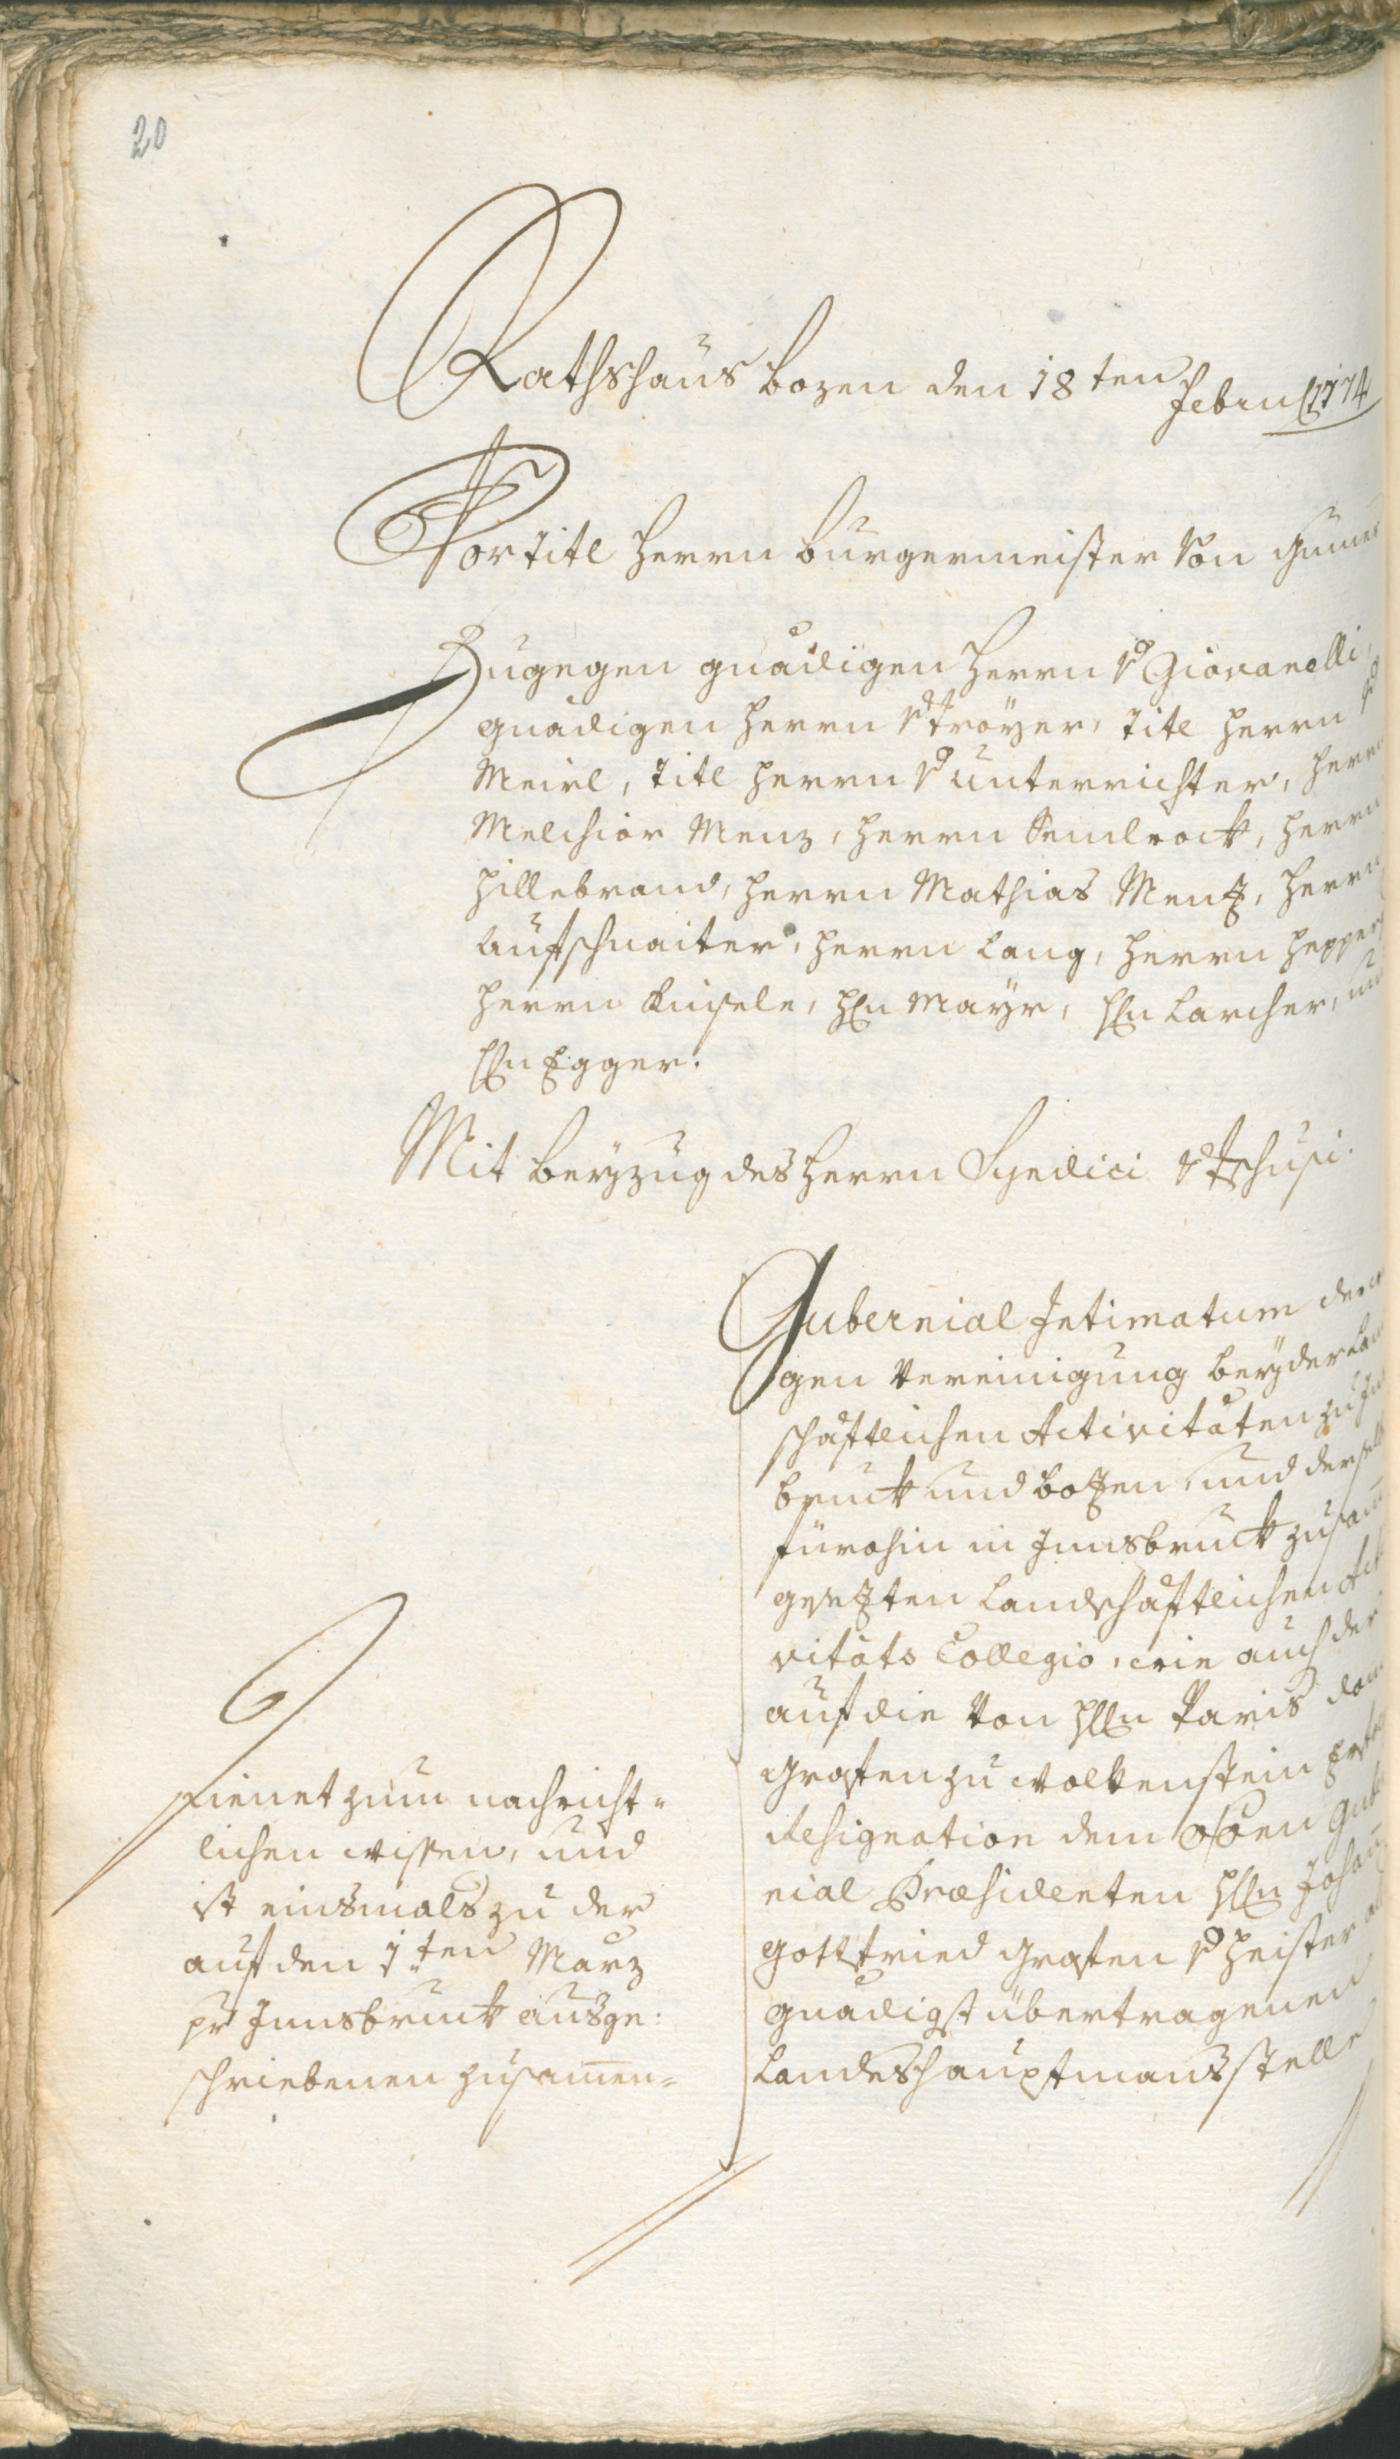 20
Rathshaus Bozen den 18ten Febru 1774
Vor Titl Herrn Burgermeister von Gumer
Zugegen gnädigen Herrn v Giovanelli,
gnädigen Herrn v Troyer, Titl Herrn v
Meirl, Titl Herrn v Unterrichter, Herrn
Melchior Menz, Herrn Semlrock, Herrn
Hillebrand, Herrn Mathias Menz, Herrn
Aufschnaiter, Herrn Lang, Herrn Hepper
Herrn Kuisele, Hln Mayr, Hln Larcher, und
Hln Egger.
Mit Beyzug des Herrn Syndici v Tschusi.
Gubernial Intimatum der
gen Vereinigung beyder Lan
schäftlichen Activitäten zu In
bruck und Bozen, und derselb
fürohin in Innsbruck zusam
gesezten Landschäftlichen Act
vitäts Collegio, wie auch der
auf die von Hlln Paris dom
Grafen zu Wolkenstein
Resignation dem Guber
nial Præsidenten Hlln Johan
Gottfried Grafen v Heister
gnädigst übertragenen
Landeshauptmansstelle
Dienet zum nachricht-
lichen Wissen, und
ist einsmals zu der
auf den 1ten März
pr Innsbruck ausge:
schriebenen Zusamen-